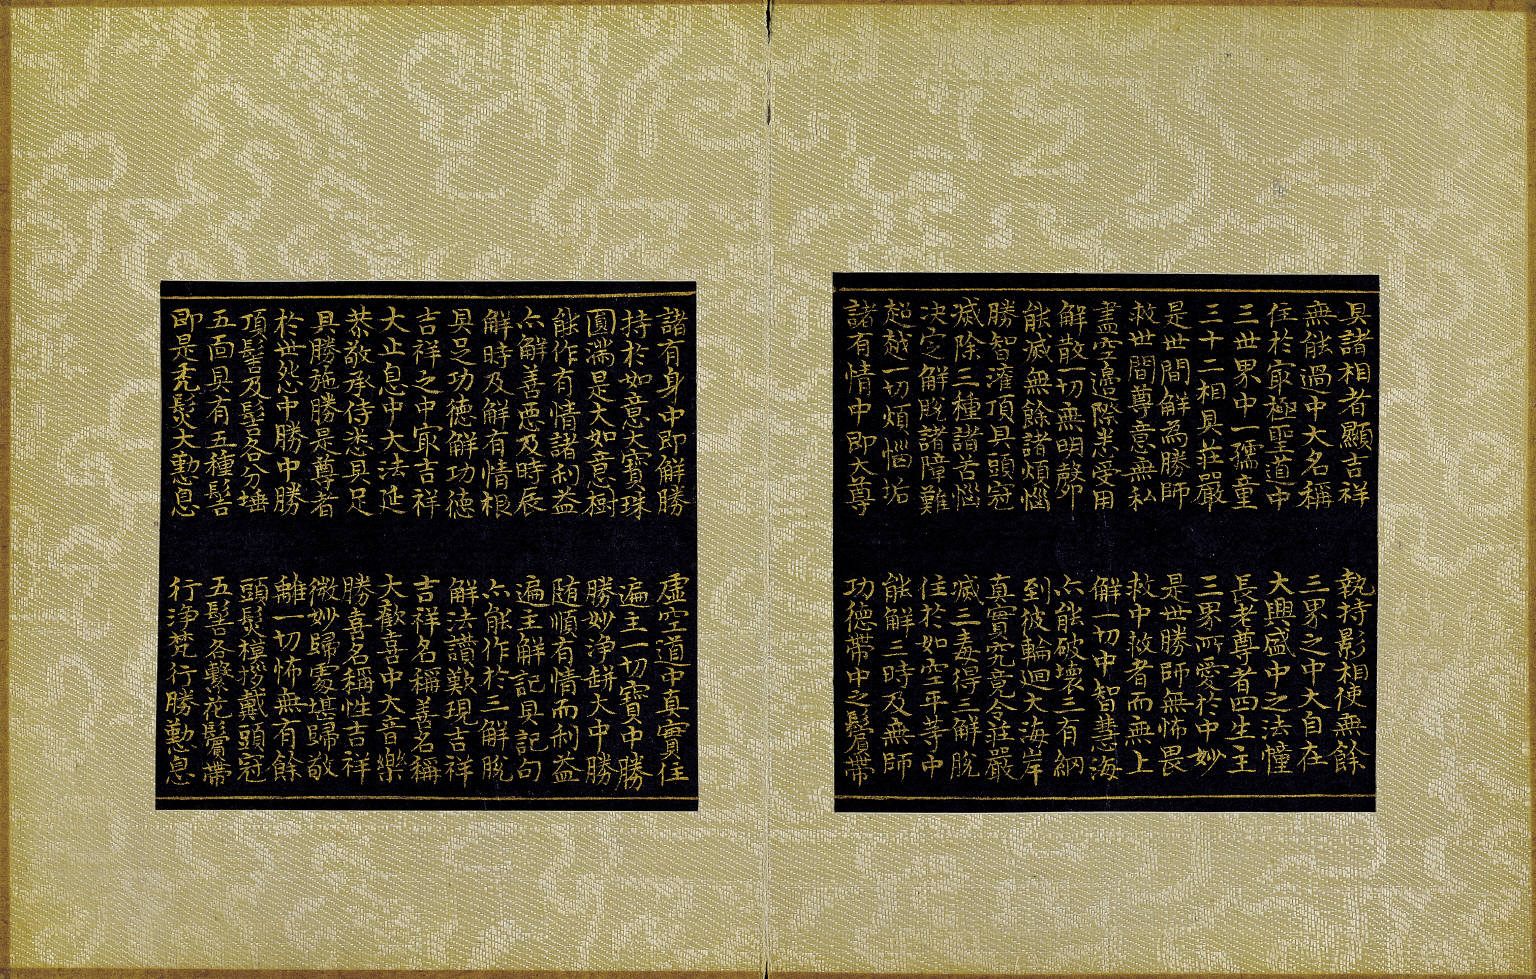 具諸相者顯吉祥 執持影相使無餘
無能過中大名稱 三界之中大自在
住於冣極聖道中 大興盛中之法幢
三世界中一孺童 長老尊者四生主
三十二相具莊嚴 三界所愛於中妙
是世間解為勝師 是世勝師無怖畏
救世間尊意無私 救中救者而無上
盡空邊際悉受用 解一切中智慧海
解散一切無明㲉 亦能破壞三有網
能滅無餘諸煩惱 到彼輪迴大海岸
勝智灌頂具頭冠 真實究竟令莊嚴
滅除三種諸苦惱 滅三毒得三解脫
決定解脫諸障難 住於如空平等中
超越一切煩惱垢 能解三時及無師
諸有情中即大尊 功德帶中之鬘帶
諸有身中即解勝 虛空道中真實住
持於如意大寶珠 遍主一切寶中勝
圓滿是大如意樹 勝妙淨缾大中勝
能作有情諸利益 隨順有情而利益
亦解善惡及時辰 遍主解記具記句
解時及解有情根 亦能作於三解脫
具足功德解功德 解法讚歎現吉祥
吉祥之中冣吉祥 吉祥名稱善名稱
大止息中大法延 大歡喜中大音樂
恭敬承侍悉具足 勝喜名稱性吉祥
具勝施勝是尊者 微妙歸處堪歸敬
於世怨中勝中勝 離一切怖無有餘
頂髻及髻各分埵 頭髮模拶戴頭冠
五面具有五種髻 五髻各繫花鬘帶
即是禿髮大勤息 行淨梵行勝勤息